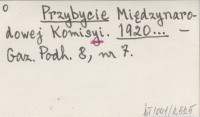 o Przybycie Międzynaro-
dowej Komisyi. 1920... -
Gaz. Podh. 8, nr 7.